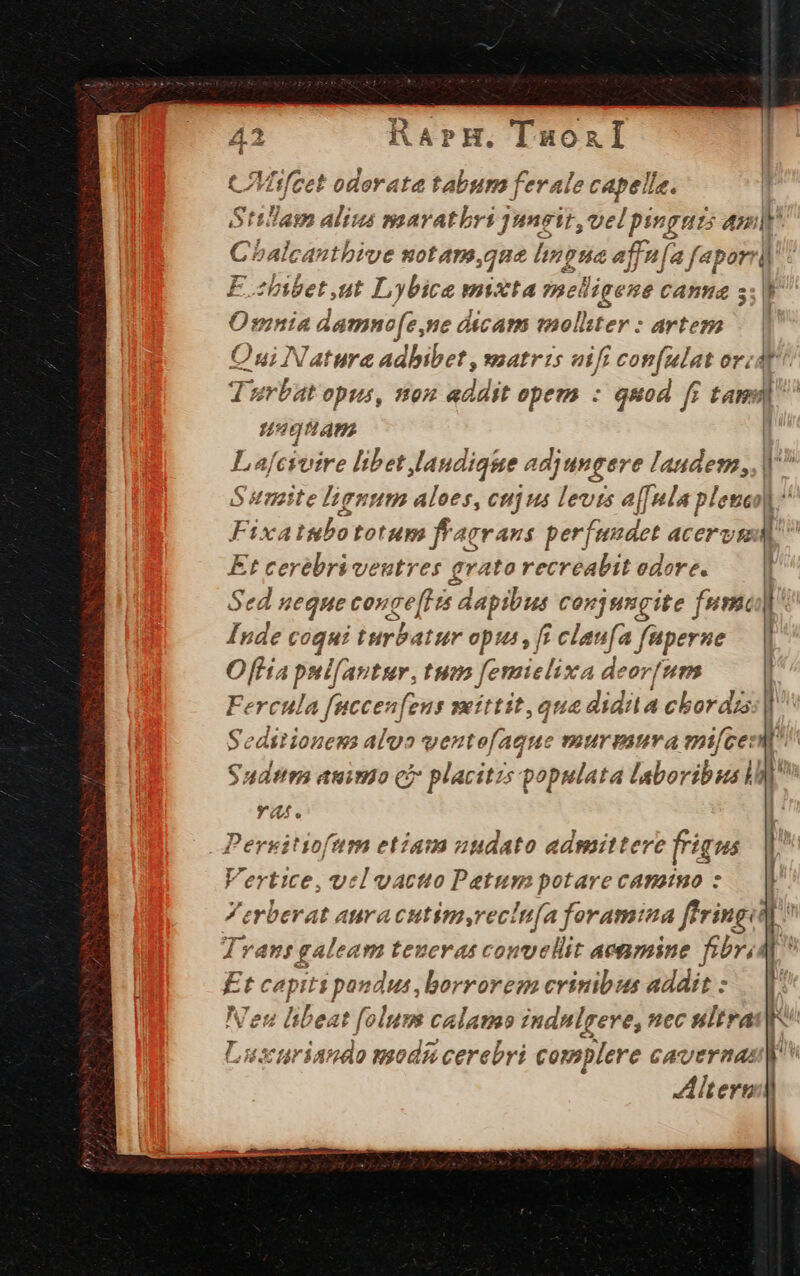 42 RAPH. THORI
Miſcet odorata tabum ferale capellæ.
Stillam alius marathri jungit, vel pinguis
Chalcanthive notam, quæ lingua aſſuſa
Exhibet, ut Lybicæ mixta melligenæ cannæ
Omnia damnoſe, ne dicam molliter: artem
Qui Naturæ adhibet, matris niſi conſulat
Turbat opus, non addit opem : quod ſi
unquam
Laſcivire libet, laudique adjungere laudem,
Sumite lignum aloes, cujus levis aſſula
Fixa tubo totum fragrans perfundet
Et cerebri ventres grato recreabit odore.
Sed neque congeſtis dapibus conjungite
Inde coqui turbatur opus, ſi clauſa ſuperne
Oſtia pulſantur, tum ſemielixa deorſum
Fercula ſuccenſens mittit, quæ didita
Seditionem alvo ventoſaque murmura
Sudum animo & placitis populata laboribus
ras.
Pernitioſum etiam nudato admittere frigus
Vertice, vel vacuo Petum potare camino :
Verberat aura cutim, recluſa foramina
Trans galeam teneras convellit acumine
Et capiti pondus, horrorem crinibus addit :
Neu libeat ſolum calamo indulgere, nec
Luxuriando modū cerebri complere